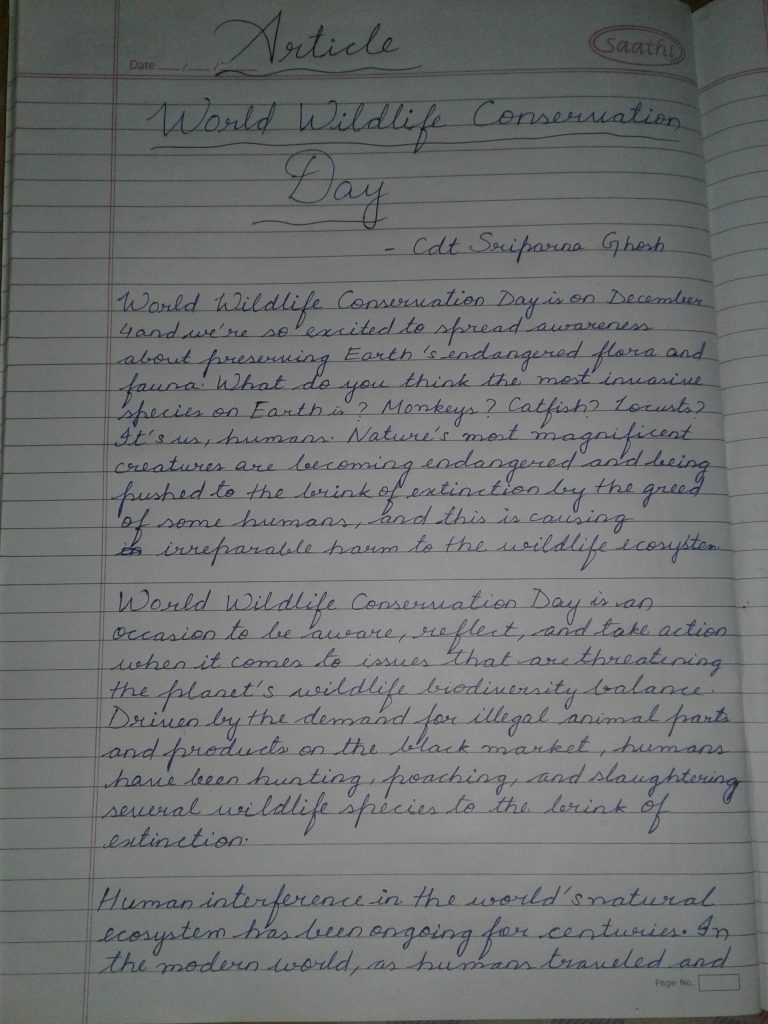 Article
saathi
Date __/__/__
World Wildlife Conservation
Day
- Cdt Sriparna Ghosh
World Wildlife Conservation Day is on December
4 and we're so excited to spread awareness
about preserving Earth's endangered flora and
fauna. What do you think the most invasive
species on Earth is? Monkeys? Catfish? Locusts?
It's us, humans. Nature's most magnificent
creatures are becoming endangered and being
pushed to the brink of extinction by the greed
of some humans, and this is causing
irreparable harm to the wildlife ecosystem.
World Wildlife Conservation Day is an
occasion to be aware, reflect, and take action
when it comes to issues that are threatening
the planet's wildlife biodiversity balance.
Driven by the demand for illegal animal parts
and products on the black market, humans
have been hunting, poaching, and slaughtering
several wildlife species to the brink of
extinction.
Human interference in the world's natural
ecosystem has been ongoing for centuries. In
the modern world, as humans traveled and
Page No.